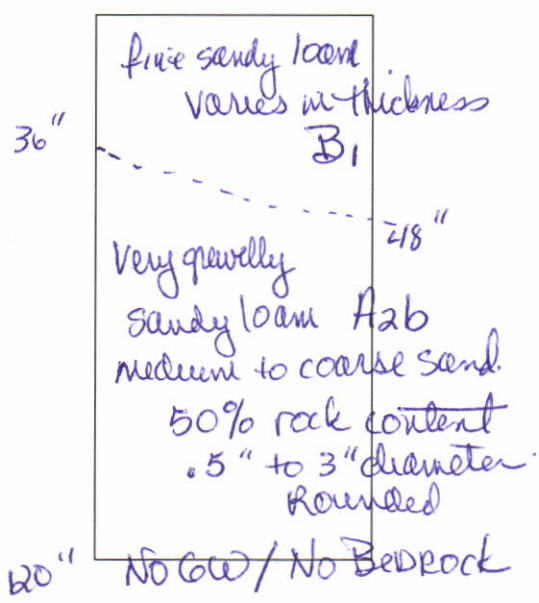 fine sandy loam
varies in thickness
36"
B1
48"
Very gravelly
sandy loam A2b
medium to coarse sand.
50% rock content
.5" to 3" diameter.
Rounded
120" NO GW / NO BEDROCK